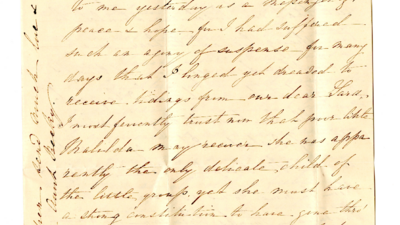 to me yesterday as a
peace & hope for I had suffered
such an agony of suspense for many
days that I longed yet dreaded to
receive tidings from our dear Sara.
I most fervently trust now that poor little
Matilda may recover she was appa
rently the only delicate child of
the little group, yet she must have
a strong constitution to have gone thro'
send much love
Aunt